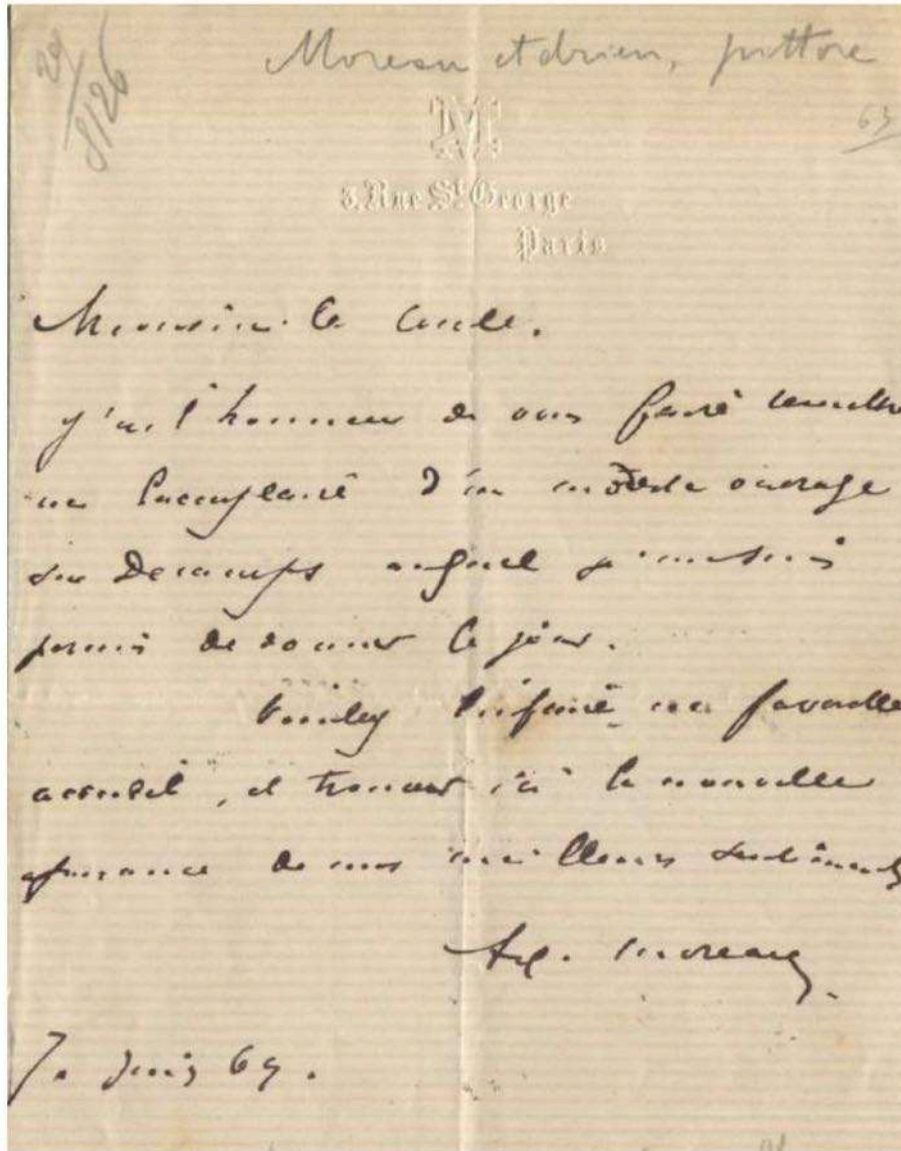 29/8126
Moreau Adrien, pittore
63
M
3. Rue St George
Paris
Monsieur le Comte.
j'ai l'honneur de vous faire remettre
un Exemplaire d'un modeste ouvrage
sur Decamps auquel je me suis
permis de donner le jour.
Veuillez lui faire un favorable
accueil, et trouver ici la nouvelle
assurance de mes meilleurs sentiments
Ad. Moreau.
7. Juin 69.